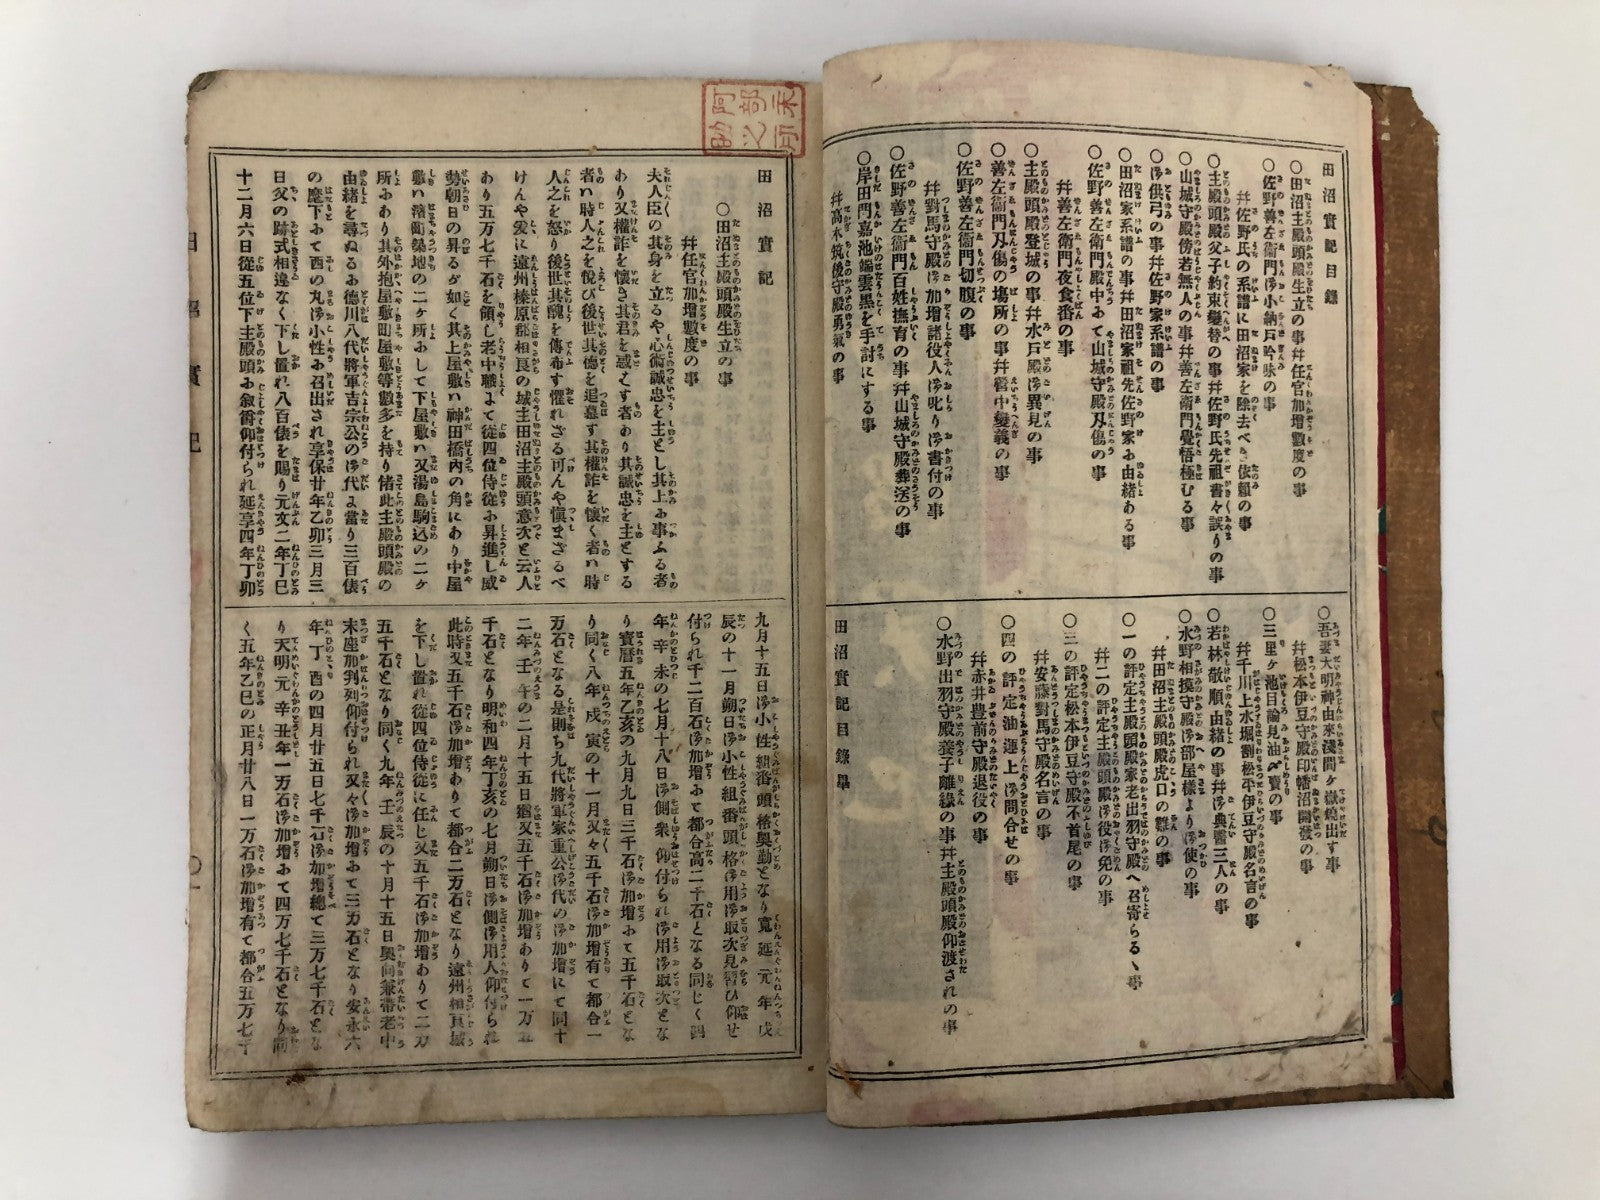 田沼實記目錄
〇田沼主殿頭殿生立の事幷任官加增數度の事
〇佐野善左衞門𛀁小納戸吟味の事
幷佐野氏の系譜に田沼家を除去べき依賴の事
〇主殿頭殿父子約束變替の事幷佐野氏先祖書々誤りの事
〇山城守殿傍若無人の事幷善左衞門覺悟極むる事
〇御供弓の事幷佐野家系譜の事
〇田沼家系譜の事幷田沼家祖先佐野家ゟ由緒ある事
〇佐野善左衞門殿中ゟて山城守殿刄傷の事
幷善左衞門夜食番の事
〇主殿頭殿登城の事幷水戸殿御異見の事
〇善左衞門刄傷の塲所の事幷營中變義の事
〇佐野善左衞門切腹の事
幷對馬守殿御加增諸役人御叱り御書付の事
〇佐野善左衞門百姓撫育の事幷山城守殿葬送の事
〇岸田門嘉池端雲黑を手討にする事
幷高木筑後守殿勇氣の事
〇吾妻大明神由來淺間ヶ嶽燒出す事
幷松本伊豆守殿印幡沼開發の事
〇三里ヶ池目論見油〆賣の事
幷千川上水堀割松平伊豆守殿名言の事
〇若林敬順由緒の事幷御典醫三人の事
〇水野相摸守殿御部屋樣より御使の事
幷田沼主殿頭殿虎口の難の事
〇一の評定主殿頭殿家老出羽守殿へ召寄らるヽ事
幷二の評定主殿頭殿御役御免の事
〇三の評定松本伊豆守殿不首尾の事
幷安藤對馬守殿名言の事
〇四の評定油運上御問合せの事
幷赤井豊前守殿退役の事
〇水野出羽守殿養子離緣の事幷主殿頭殿仰渡されの事
田沼實記目錄畢
田沼實記
〇田沼主殿頭殿生立の事
幷任官加增數度の事
夫人臣の其身を立るや心術誠忠を主とし其上ふ事ふる者
あり又權詐を懷き其君を惑はす者あり其誠忠を主とする
者ハ時人之を悅び後世其德を追慕す其權詐を懷く者ハ時
人之を怒り後世其醜を傳布す懼れざる可んや愼まざるべ
けんや爰に遠州榛原郡相良の城主田沼主殿頭意次と云人
あり五万七千石を領し老中職よて從四位侍從ふ昇進し威
勢朝日の昇るが如く其上屋敷ハ神田橋內の角にあり中屋
敷ハ濱町築地の二ヶ所ふして下屋敷ハ又湯島駒込の二ヶ
所ふあり其外抱屋敷町屋敷等數多を持り偖此主殿頭殿の
由緒を尋ぬるふ德川八代將軍吉宗公の御代よ當り三百俵
の麾下ふて西の丸御小性ふ召出され享保廿年乙卯三月三
日父の跡式相違なく下し置れ八百俵を賜り元文二年丁巳
十二月六日從五位下主殿頭ふ敘爵仰付られ延享四年丁卯
九月十五日御小性組番頭格奧勤となり寬延元年戊
辰の十一月朔日御小性組番頭格御用御取次見習ひ仰せ
付られ千二百石御加增ふて都合高二千石となる同じく四
年辛未の七月十八日御側衆仰付られ御用御取次とな
り寳曆五年乙亥の九月九日三千石御加增ふて五千石とな
り同く八年戊寅の十一月又々五千石御加增有て都合一
万石となる是則ち九代將軍家重公御代の御加增にて同十
二年壬午の二月十五日猶又五千石御加增ありて一万五
千石となり明和四年丁亥の七月朔日御側御用人仰付られ
此時又五千石御加增ありて都合二万石となり遠州相良城
を下し置れ從四位侍從に任じ又五千石御加增ありて二万
五千石となり同く九年壬辰の十月十五日奧向兼帶老中
末座加判列仰付られ又々御加增ふて三万石となり安永六
年丁酉の四月廿五日七千石御加增總て三万七千石とな
り天明元辛丑年一万石御加增ふて四万七千石となり同
く五年乙巳の正月廿八日一万石御加增有て都合五万七千
田沼實記
〇一